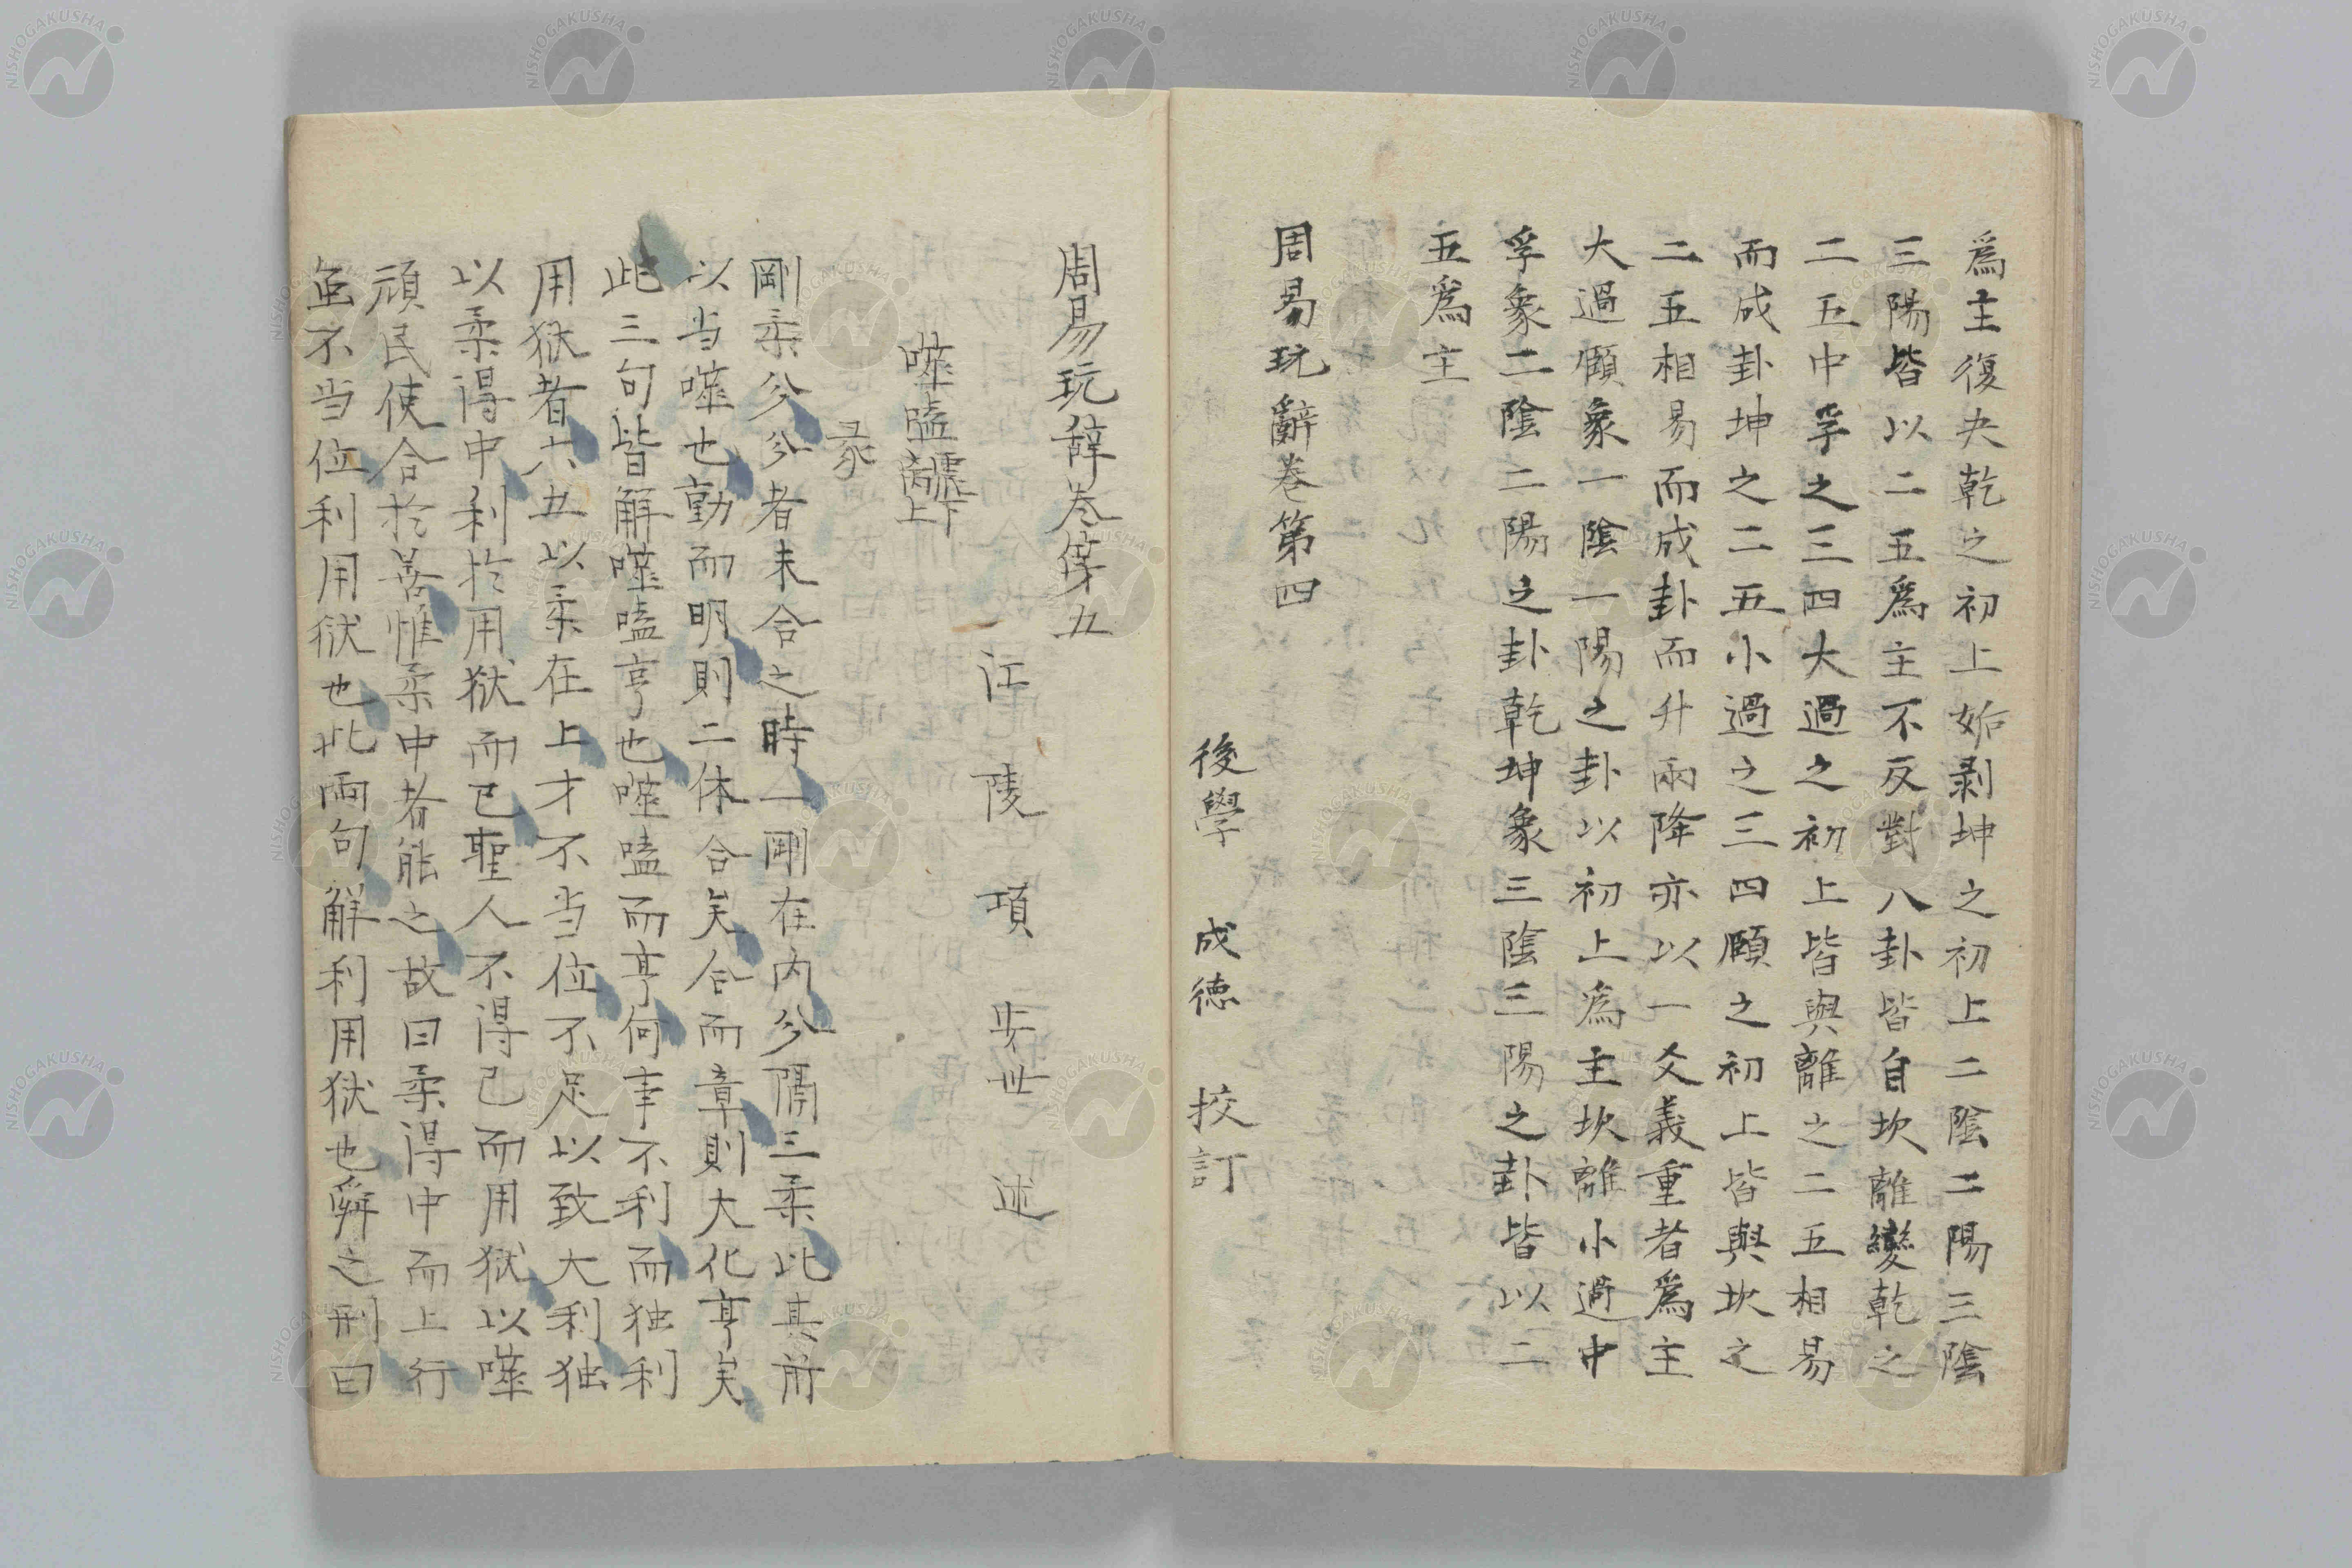 爲主復夬乾之初上姤剥坤之初上二陰二陽三陰
三陽皆以二五爲主不反對八卦皆自坎離變乾之
二五中孚之三四大過之初上皆與離之二五相易
而成卦坤之二五小過之三四頤之初上皆與坎之
二五相易而成卦而升兩降亦以一爻義重者爲主
大過頤象一陰一陽之卦以初上爲主坎離小過中
孚象二陰二陽之卦乾坤象三陰三陽之卦皆以二
五爲主
周易玩辭卷第四
後學 成徳 挍訂
周易玩辞巻苐五
江陵項安世述
噬嗑 震下离上
彖
剛柔分分者未合之時一剛在内分隔三柔此其前
以当噬也動而明則二体合矣合而章則大化亨矣
此三句皆解噬嗑亨也噬嗑而亨何事不利而独利
用獄者六五以柔在上才不当位不足以致大利独
以柔得中利於用獄而已聖人不得已而用獄以噬
頑民使合於善惟柔中者能之故曰柔得中而上行
虽不当位利用狱也此両句解利用狱也舜之刑曰
NISHOGAKUSHA